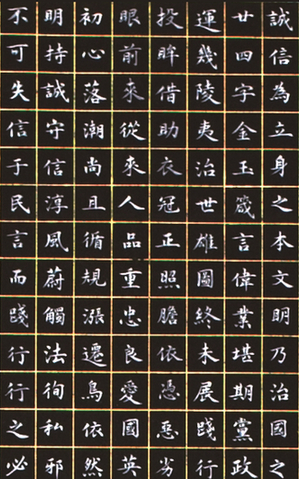 誠信為立身之本文明乃治國之
廿四字金玉箴言偉業堪期黨政
運幾陵夷治世雄圖終未展踐行
投眸借助衣冠正照膽依憑惡劣
眼前來從來人品重忠良愛國英
初心落潮尚且循規漲遷鳥依然
明持誠守信淳風蔚觸法徇私邪
不可失信于民言而踐行行之必